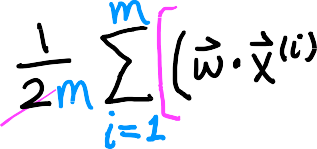 \frac{1}{2m} \sum_{i=1}^{m} [ ( \vec{w} \cdot \vec{x}^{(i)}